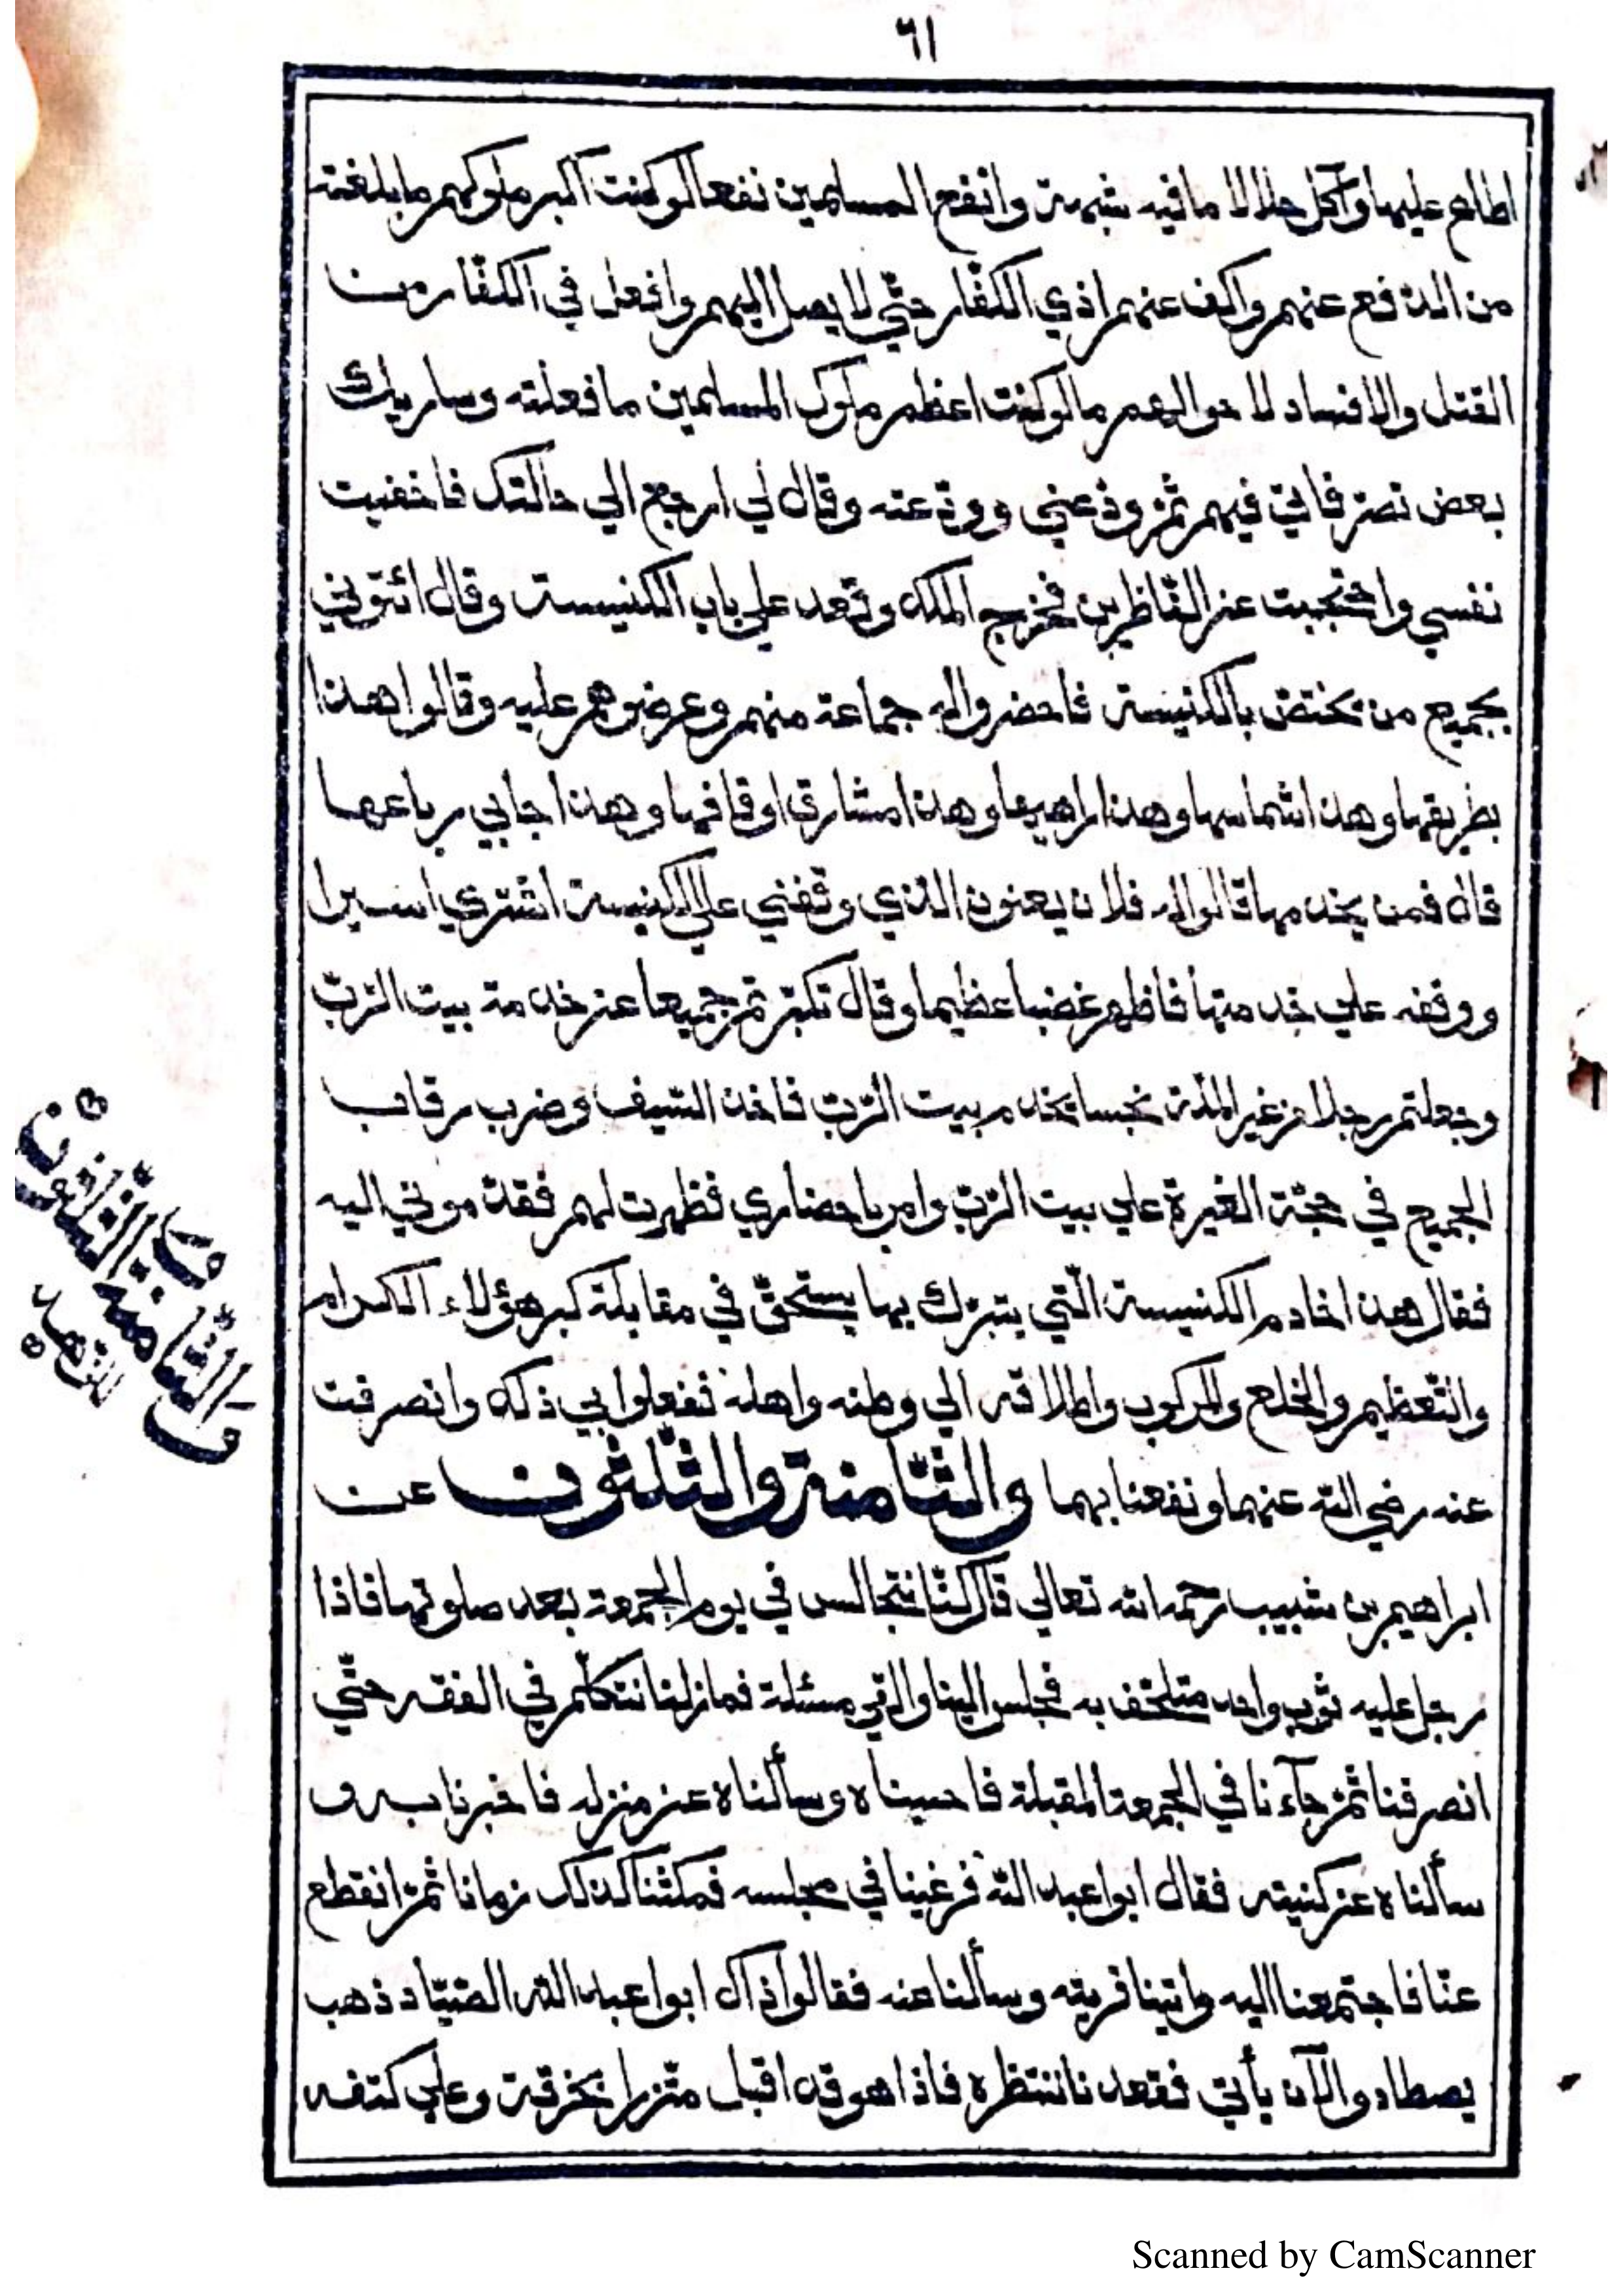 ٦١
اطلع عليها وآكل حلالا ما فيه شبهة وانفع المسلمين نفعا لو كنت اكبر ملوكهم ما بلغته
من الدفع عنهم واكف عنهم اذي الكفّار حتّي لا يصل اليهم وافعل في الكفّار من
القتل والافساد لاحوالهم ما لو كنت اعظم ملوك المسلمين ما فعلته وساريك
بعض تصرّفاتي فيهم ثمّ ودّعني وودّعته وقال لي ارجع الي حالتك فاخفيت
نفسي واحتجبت عن النّاظرين فخرج الملك وقعد علي باب الكنيسة وقال ائتوني
بجميع من يختصّ بالكنيسة فاحضروا له جماعة منهم وعرضوهم عليه وقالوا هذا
بطريقها وهذا شماسها وهذا راهبها وهذا مشارق اوقافها وهذا جابي رباعها
قال فمن يخدمها قالوا له فلان يعنون الذي وقفني علي الكنيسة اشتري اسيرا
ووقفه علي خدمتها فاظهر غضبا عظيما وقال تكبّرتم جميعا عن خدمة بيت الرّبّ
وجعلتم رجلا من غير الملّة نجسا يخدم بيت الرّبّ فاخذ السّيف وضرب رقاب
الجميع في حجّة الغيرة علي بيت الرّبّ وامر باحضاري فظهرت لهم فقدّموني اليه
فقال هذا خادم الكنيسة الّتي يتبرّك بها يستحقّ في مقابلة كبر هؤلاء الاكرام
والتّعظيم والخلع والمركوب واطلاقه الي وطنه واهله ففعلوا بي ذلك وانصرفت
عنه رضي الله عنهما ونفعنا بهما والثّامنة والثّلثون عن
ابراهيم بن شبيب رحمه الله تعالي قال كنّا نتجالس في يوم الجمعة بعد صلوتها فاذا
رجل عليه ثوب واحد متلحّف به فجلس الينا والقي مسئلة فما زلنا نتكلّم في الفقه حتّي
انصرفنا ثمّ جآءنا في الجمعة المقبلة فاحببناه وسألناه عن منزله فاخبرنا به و
سألناه عن كنيته فقال ابوا عبد اللّه فرغبنا في مجلسه فمكثنا كذلك زمانا ثمّ انقطع
عنّا فاجتمعنا اليه واتينا قريته وسألنا عنه فقالوا ذاك ابوا عبد اللّه الصّيّاد ذهب
يصطاد والآن يأتي فقعدنا ننتظره فاذا هو قد اقبل متّزرا بخرقة وعلي كتفه
والثّامنة والثّلثون
Scanned by CamScanner